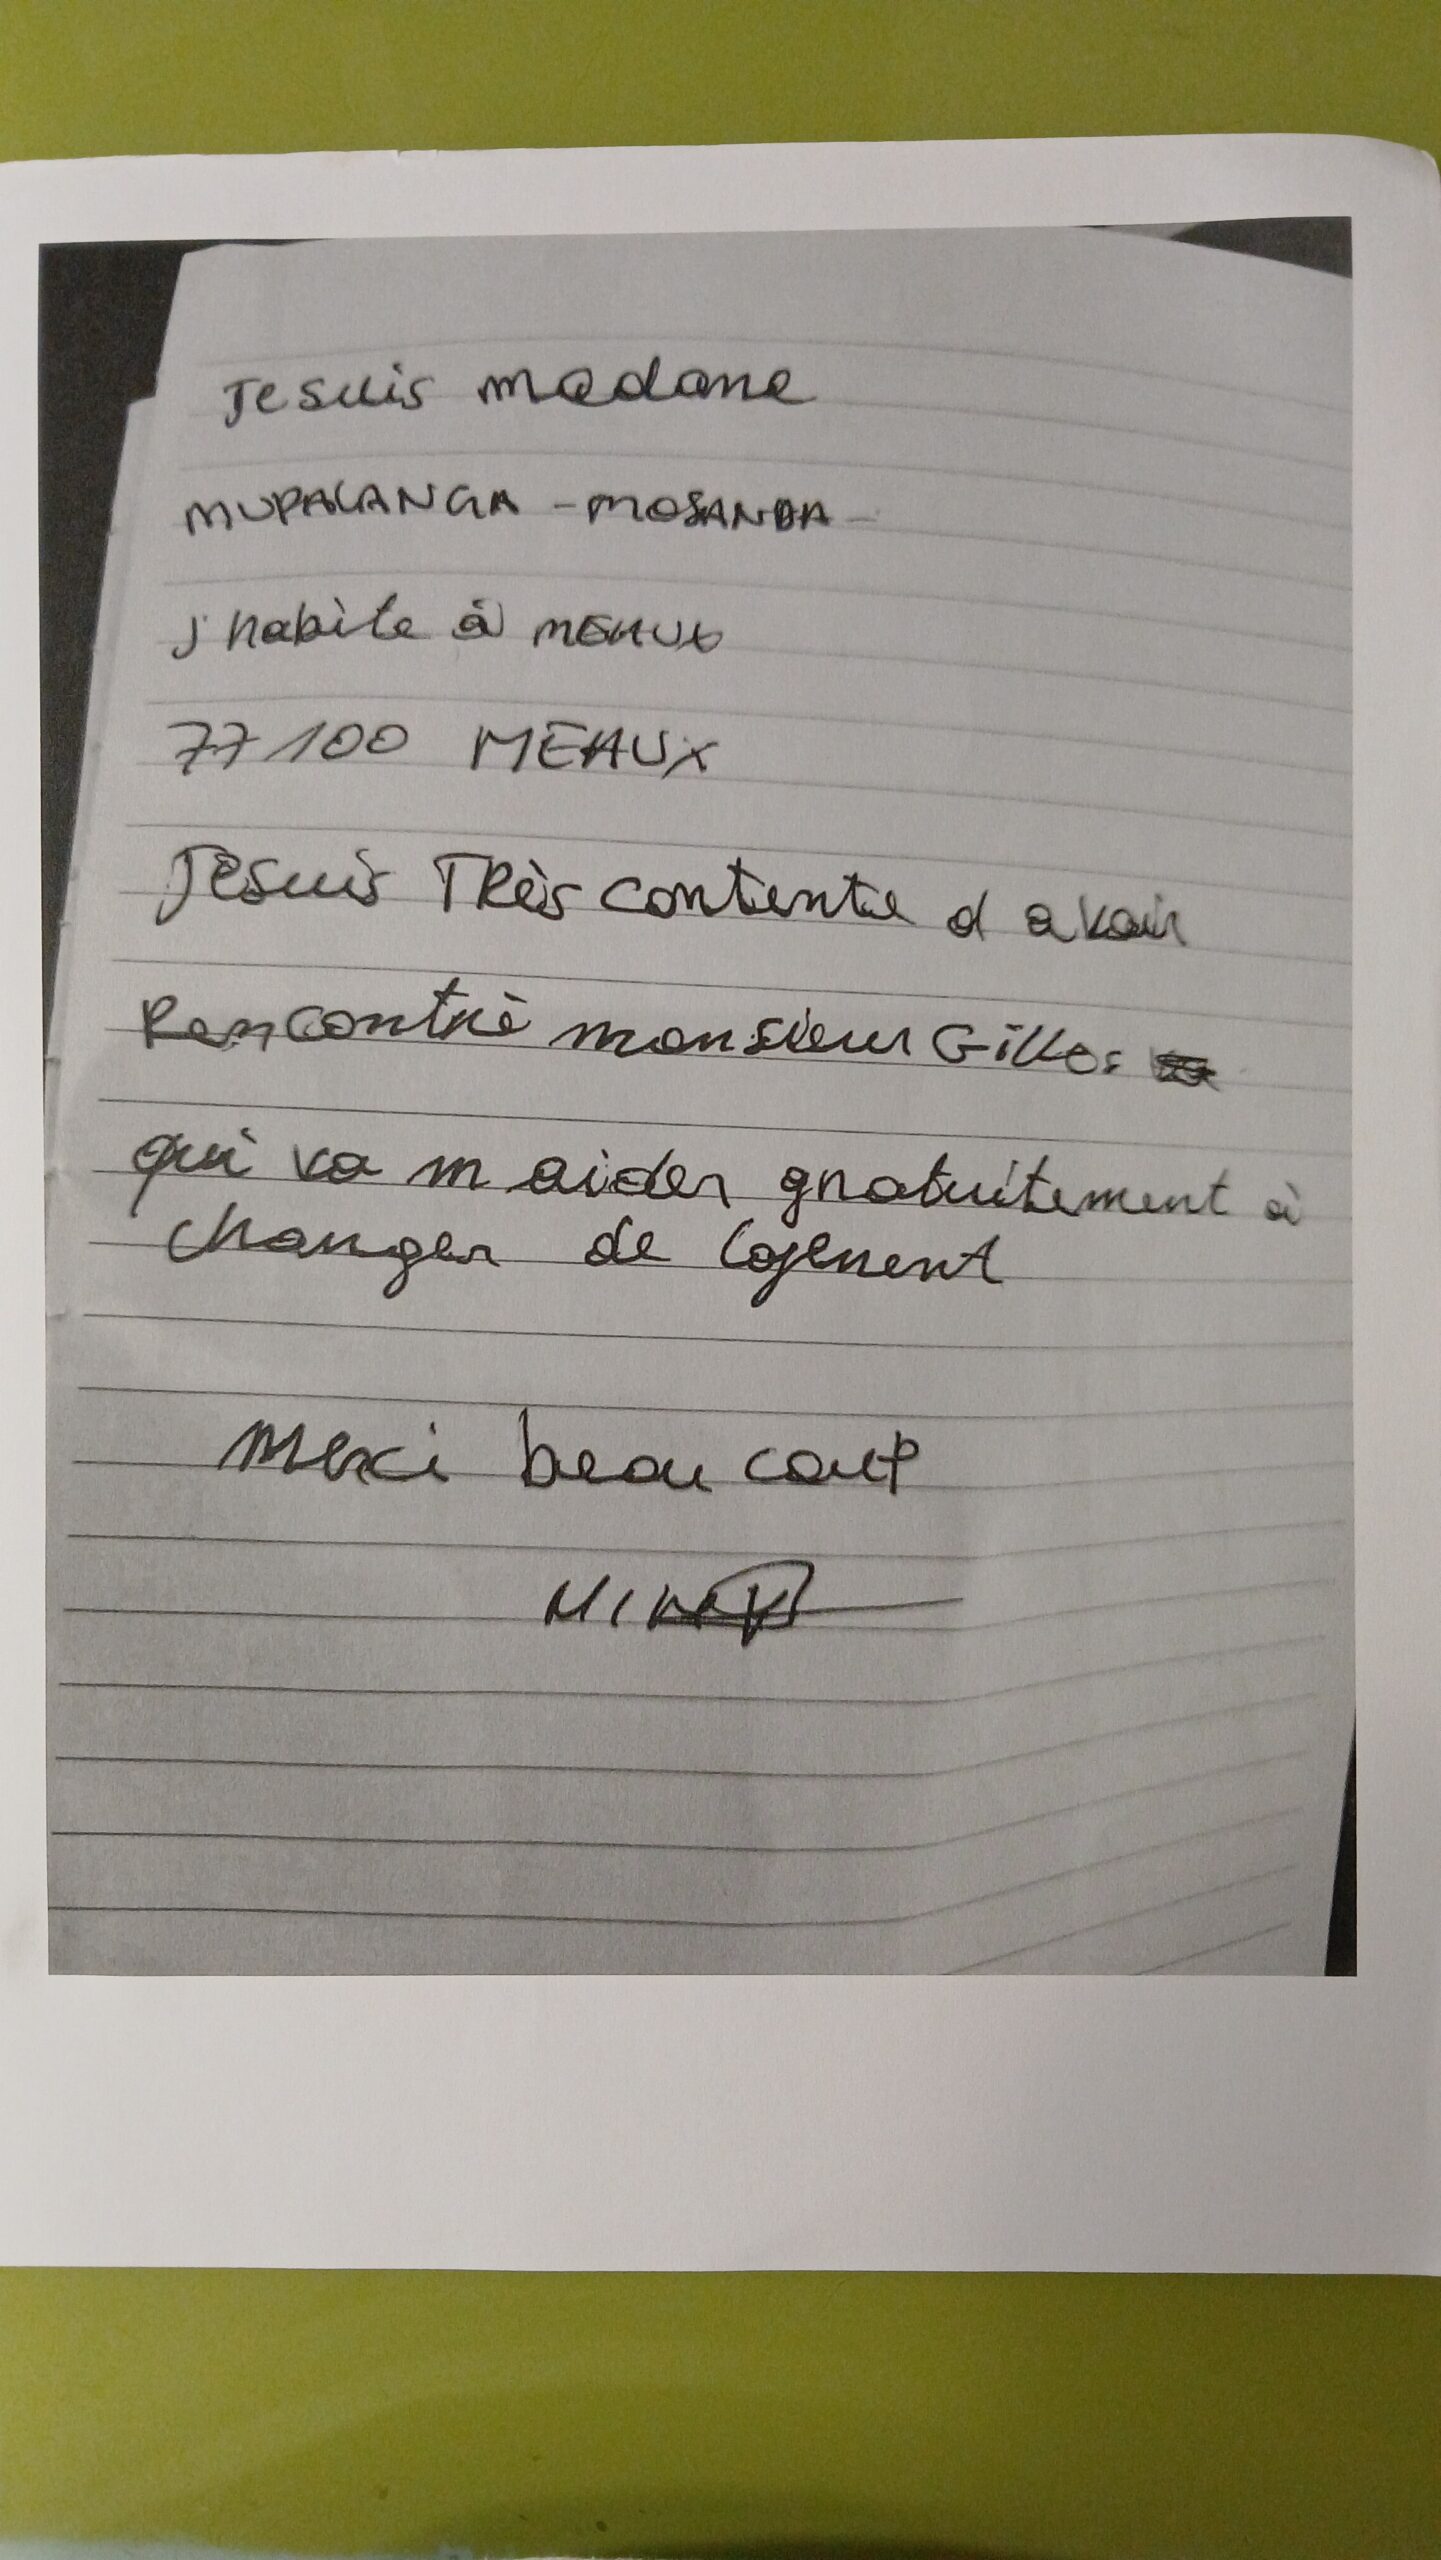 Je suis madame
MUPALANGA - MOSANDA -
j habite à MEAUX
77100 MEAUX
Je suis TRès contente d avoir
Rencontré monsieur Gilles
qui va m aider gratuitement à
changer de logement
Merci beau coup